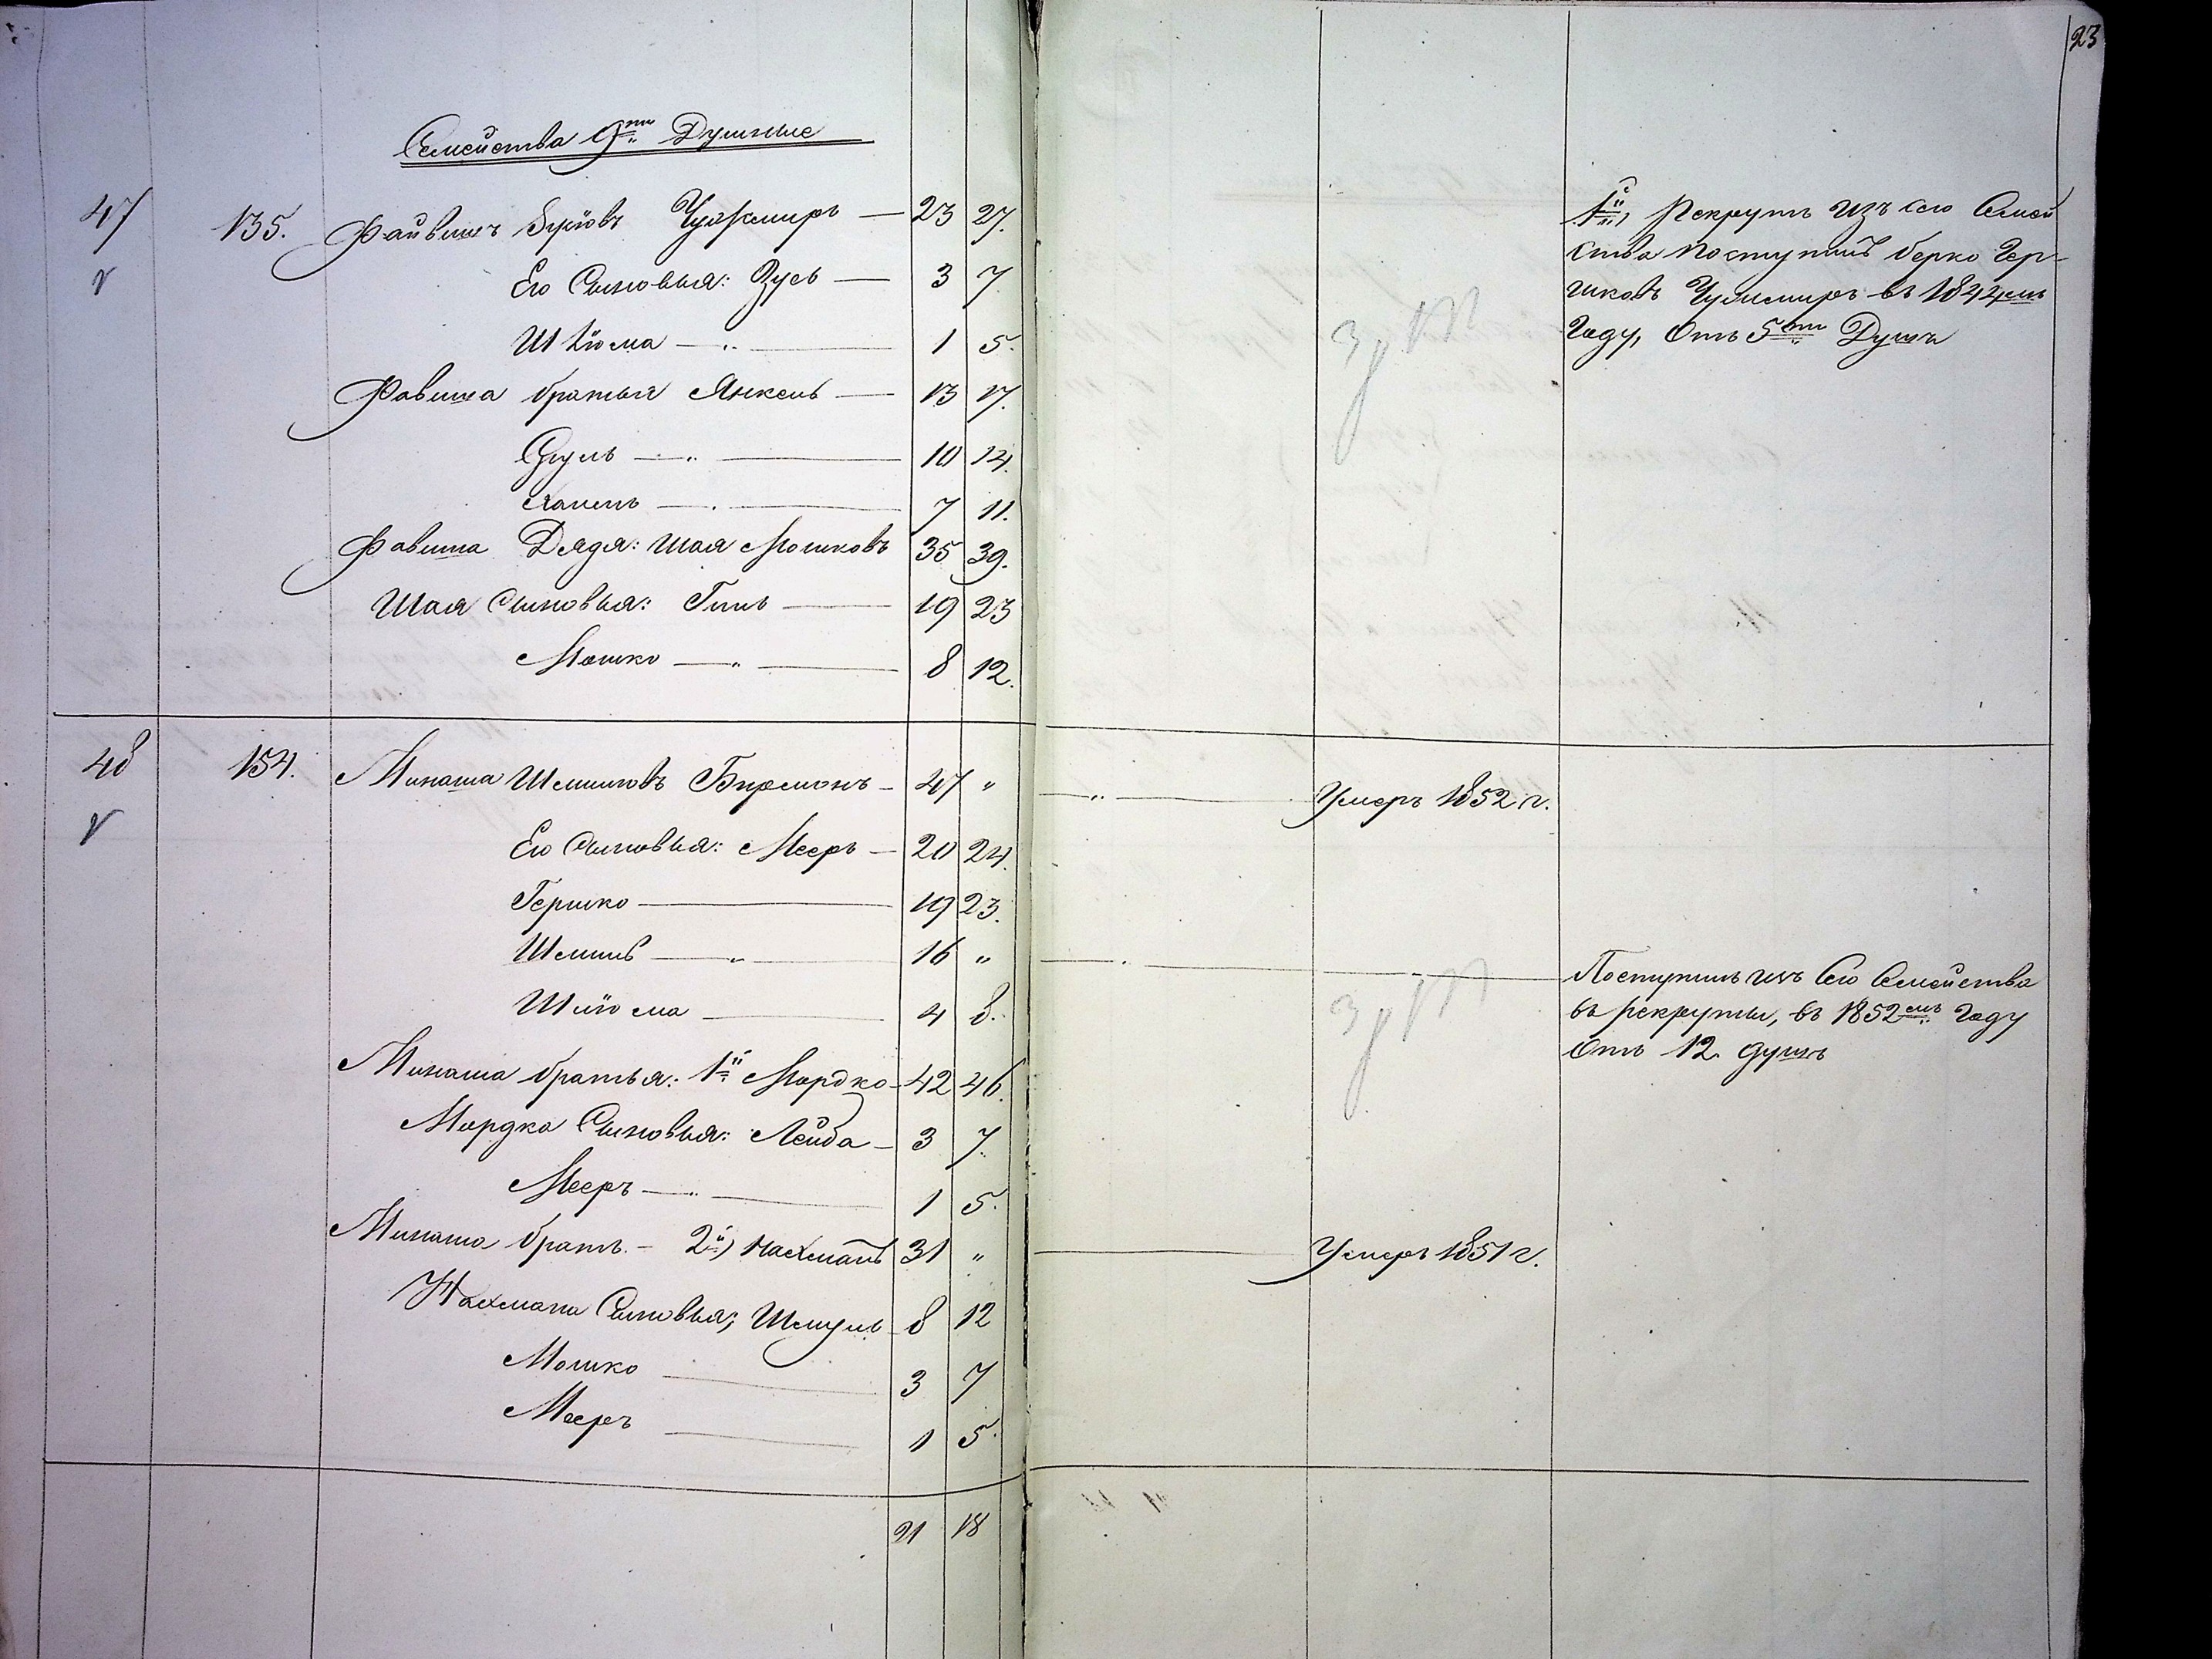 23
Семейства 9ти Душные
47 135. Файвишъ Чухмиръ — 23 27.
Его Сыновья: Зусь — 3 7
Шлiома — „ — 1 5.
Фавиша братья Янкель — 13 17.
Сруль — „ — 10 14.
7 11.
Фавиша Дядя: Шая Мошковъ 35 39.
Шая Сыновья: — 19 23
Мошко — „ — 8 12.
1й, Рекрутъ изъ сего Семей
ства поступилъ Берко Гер-
шковъ въ 1844мъ
Году, отъ 5ти Душъ
48 154. Минаша Шмилювъ — 47 „ — „ — Умеръ 1852 г.
Его Сыновья: Мееръ — 20 24.
Гершко — 19 23.
Шмиль — „ — 16 „ — . — Поступилъ изъ Сего Семейства
въ рекруты, въ 1852мъ Году
отъ 12. душъ
Шлiома — 4 8.
Минаша братья: 1й Мордко — 42 46.
Мордка Сыновья: Лейба — 3 7.
Мееръ — „ — 1 5.
Минаша братъ. — 2й) Нахманъ 31 „ — Умеръ 1851 г.
Нахмана Сыновья; Шмуль 8 12
Мошко — 3 7
Мееръ — 1 5.
21 18